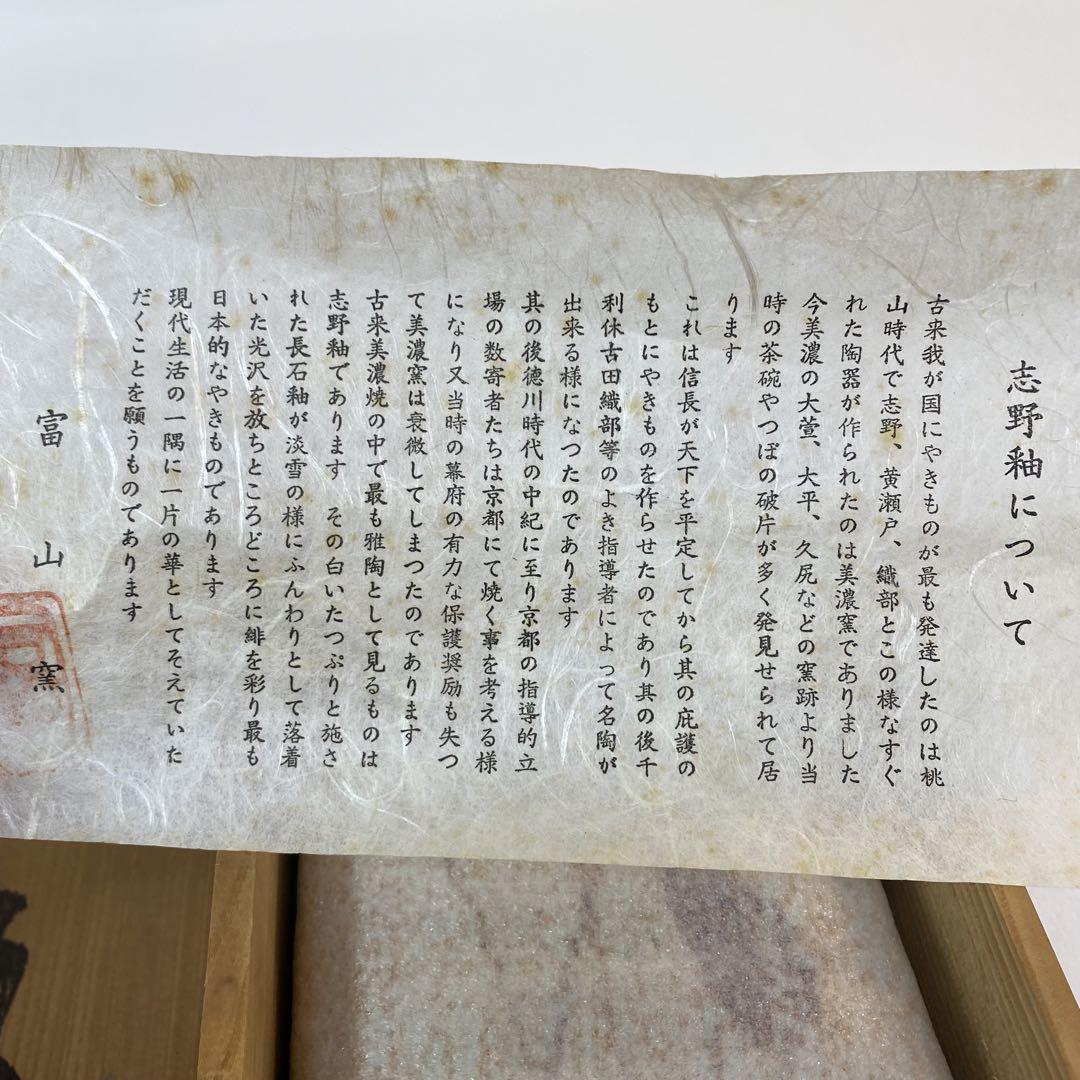 志野釉について
古来我が国にやきものが最も発達したのは桃
山時代で志野、黄瀬戸、織部とこの様なすぐ
れた陶器が作られたのは美濃窯でありました
今美濃の大萱、大平、久尻などの窯跡より当
時の茶碗やつぼの破片が多く発見せられて居
ります
これは信長が天下を平定してから其の庇護の
もとにやきものを作らせたのであり其の後千
利休古田織部等のよき指導者によって名陶が
出来る様になつたのであります
其の後徳川時代の中紀に至り京都の指導的立
場の数寄者たちは京都にて焼く事を考える様
になり又当時の幕府の有力な保護奨励も失つ
て美濃窯は衰微してしまつたのであります
古来美濃焼の中で最も雅陶として見るものは
志野釉であります　その白いたつぷりと施さ
れた長石釉が淡雪の様にふんわりとして落着
いた光沢を放ちところどころに緋を彩り最も
日本的なやきものであります
現代生活の一隅に一片の華としてそえていた
だくことを願うものであります
富山窯